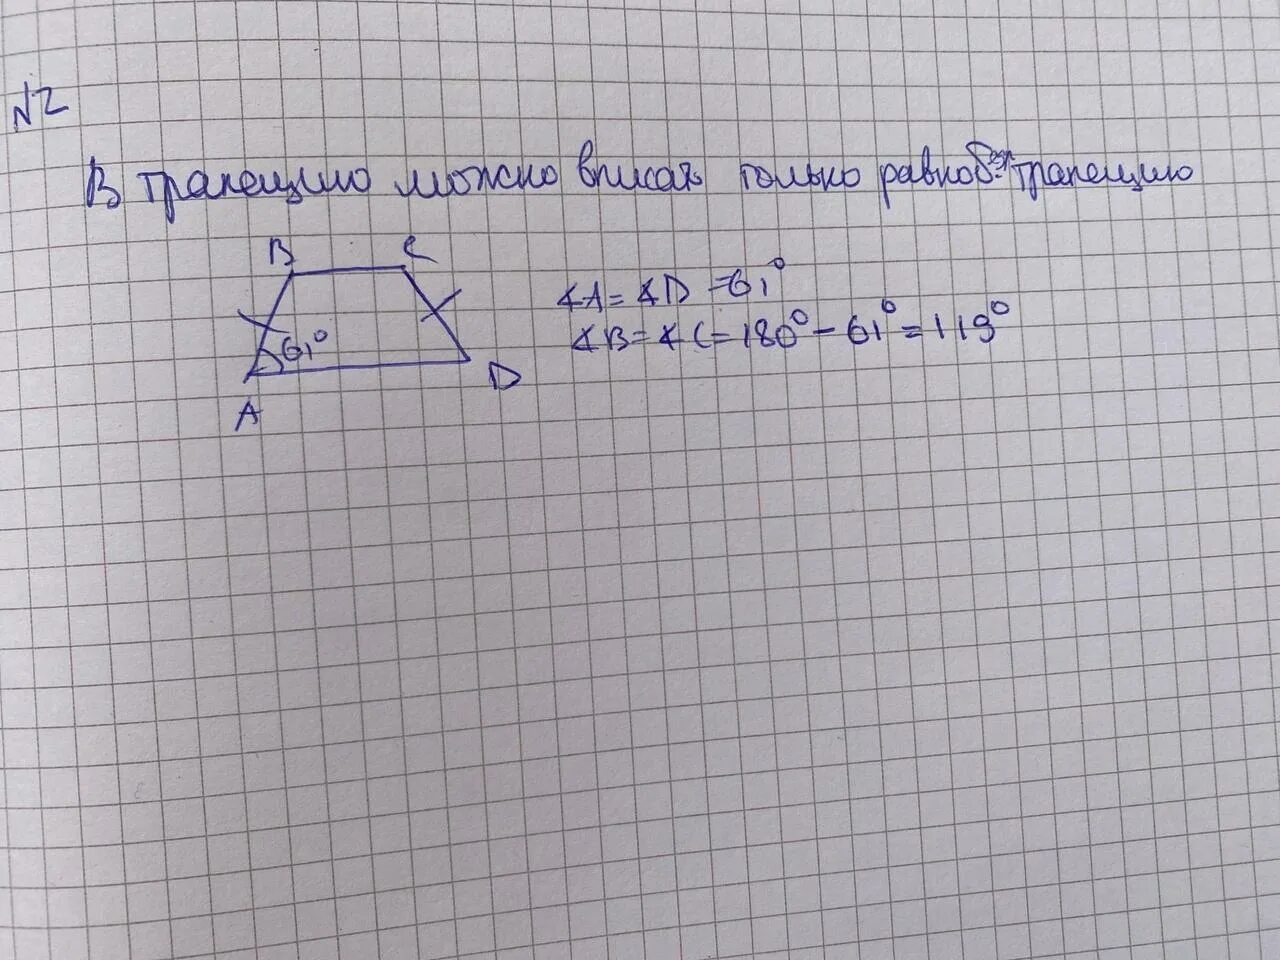 N2
В трапецию можно вписать только равноб. трапецию
B C
61°
A D
∡A = ∡D = 61°
∡B = ∡C = 180° - 61° = 119°